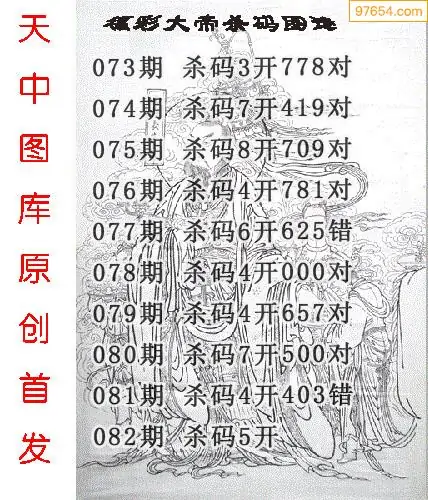 97654.com
福彩大帝杀码图谜
天中图库原创首发
073期 杀码3开778对
074期 杀码7开419对
075期 杀码8开709对
076期 杀码4开781对
077期 杀码6开625错
078期 杀码4开000对
079期 杀码4开657对
080期 杀码7开500对
081期 杀码4开403错
082期 杀码5开